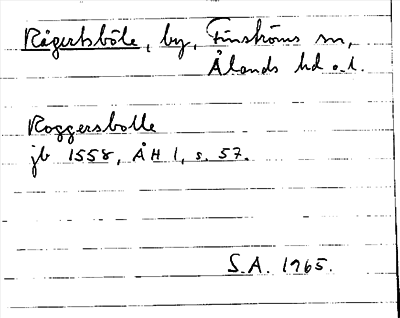 Rågertsböle, by, Finströms sn,
Ålands hd o. l.
Roggersbolle
jb 1558, ÅH 1, s. 57.
S.A. 1965.